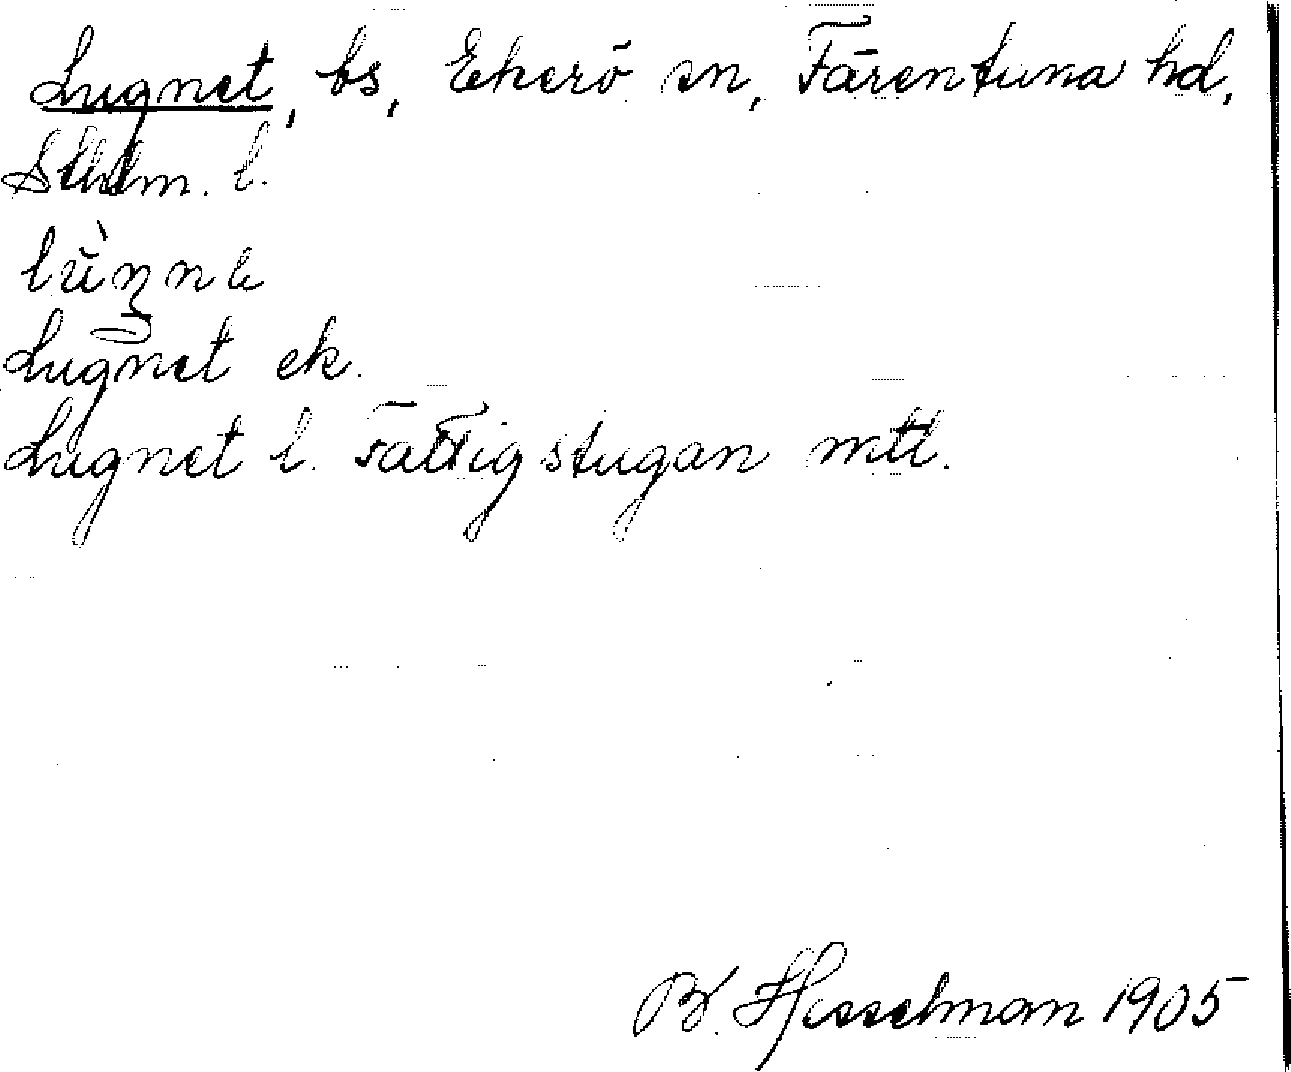 Lugnet, bs, Ekerö sn, Färentuna hd,
Sthlm. l.
lùŋnɛ
Lugnet ek.
Lugnet l. Fattigstugan mtl.
B. Hesselman 1905